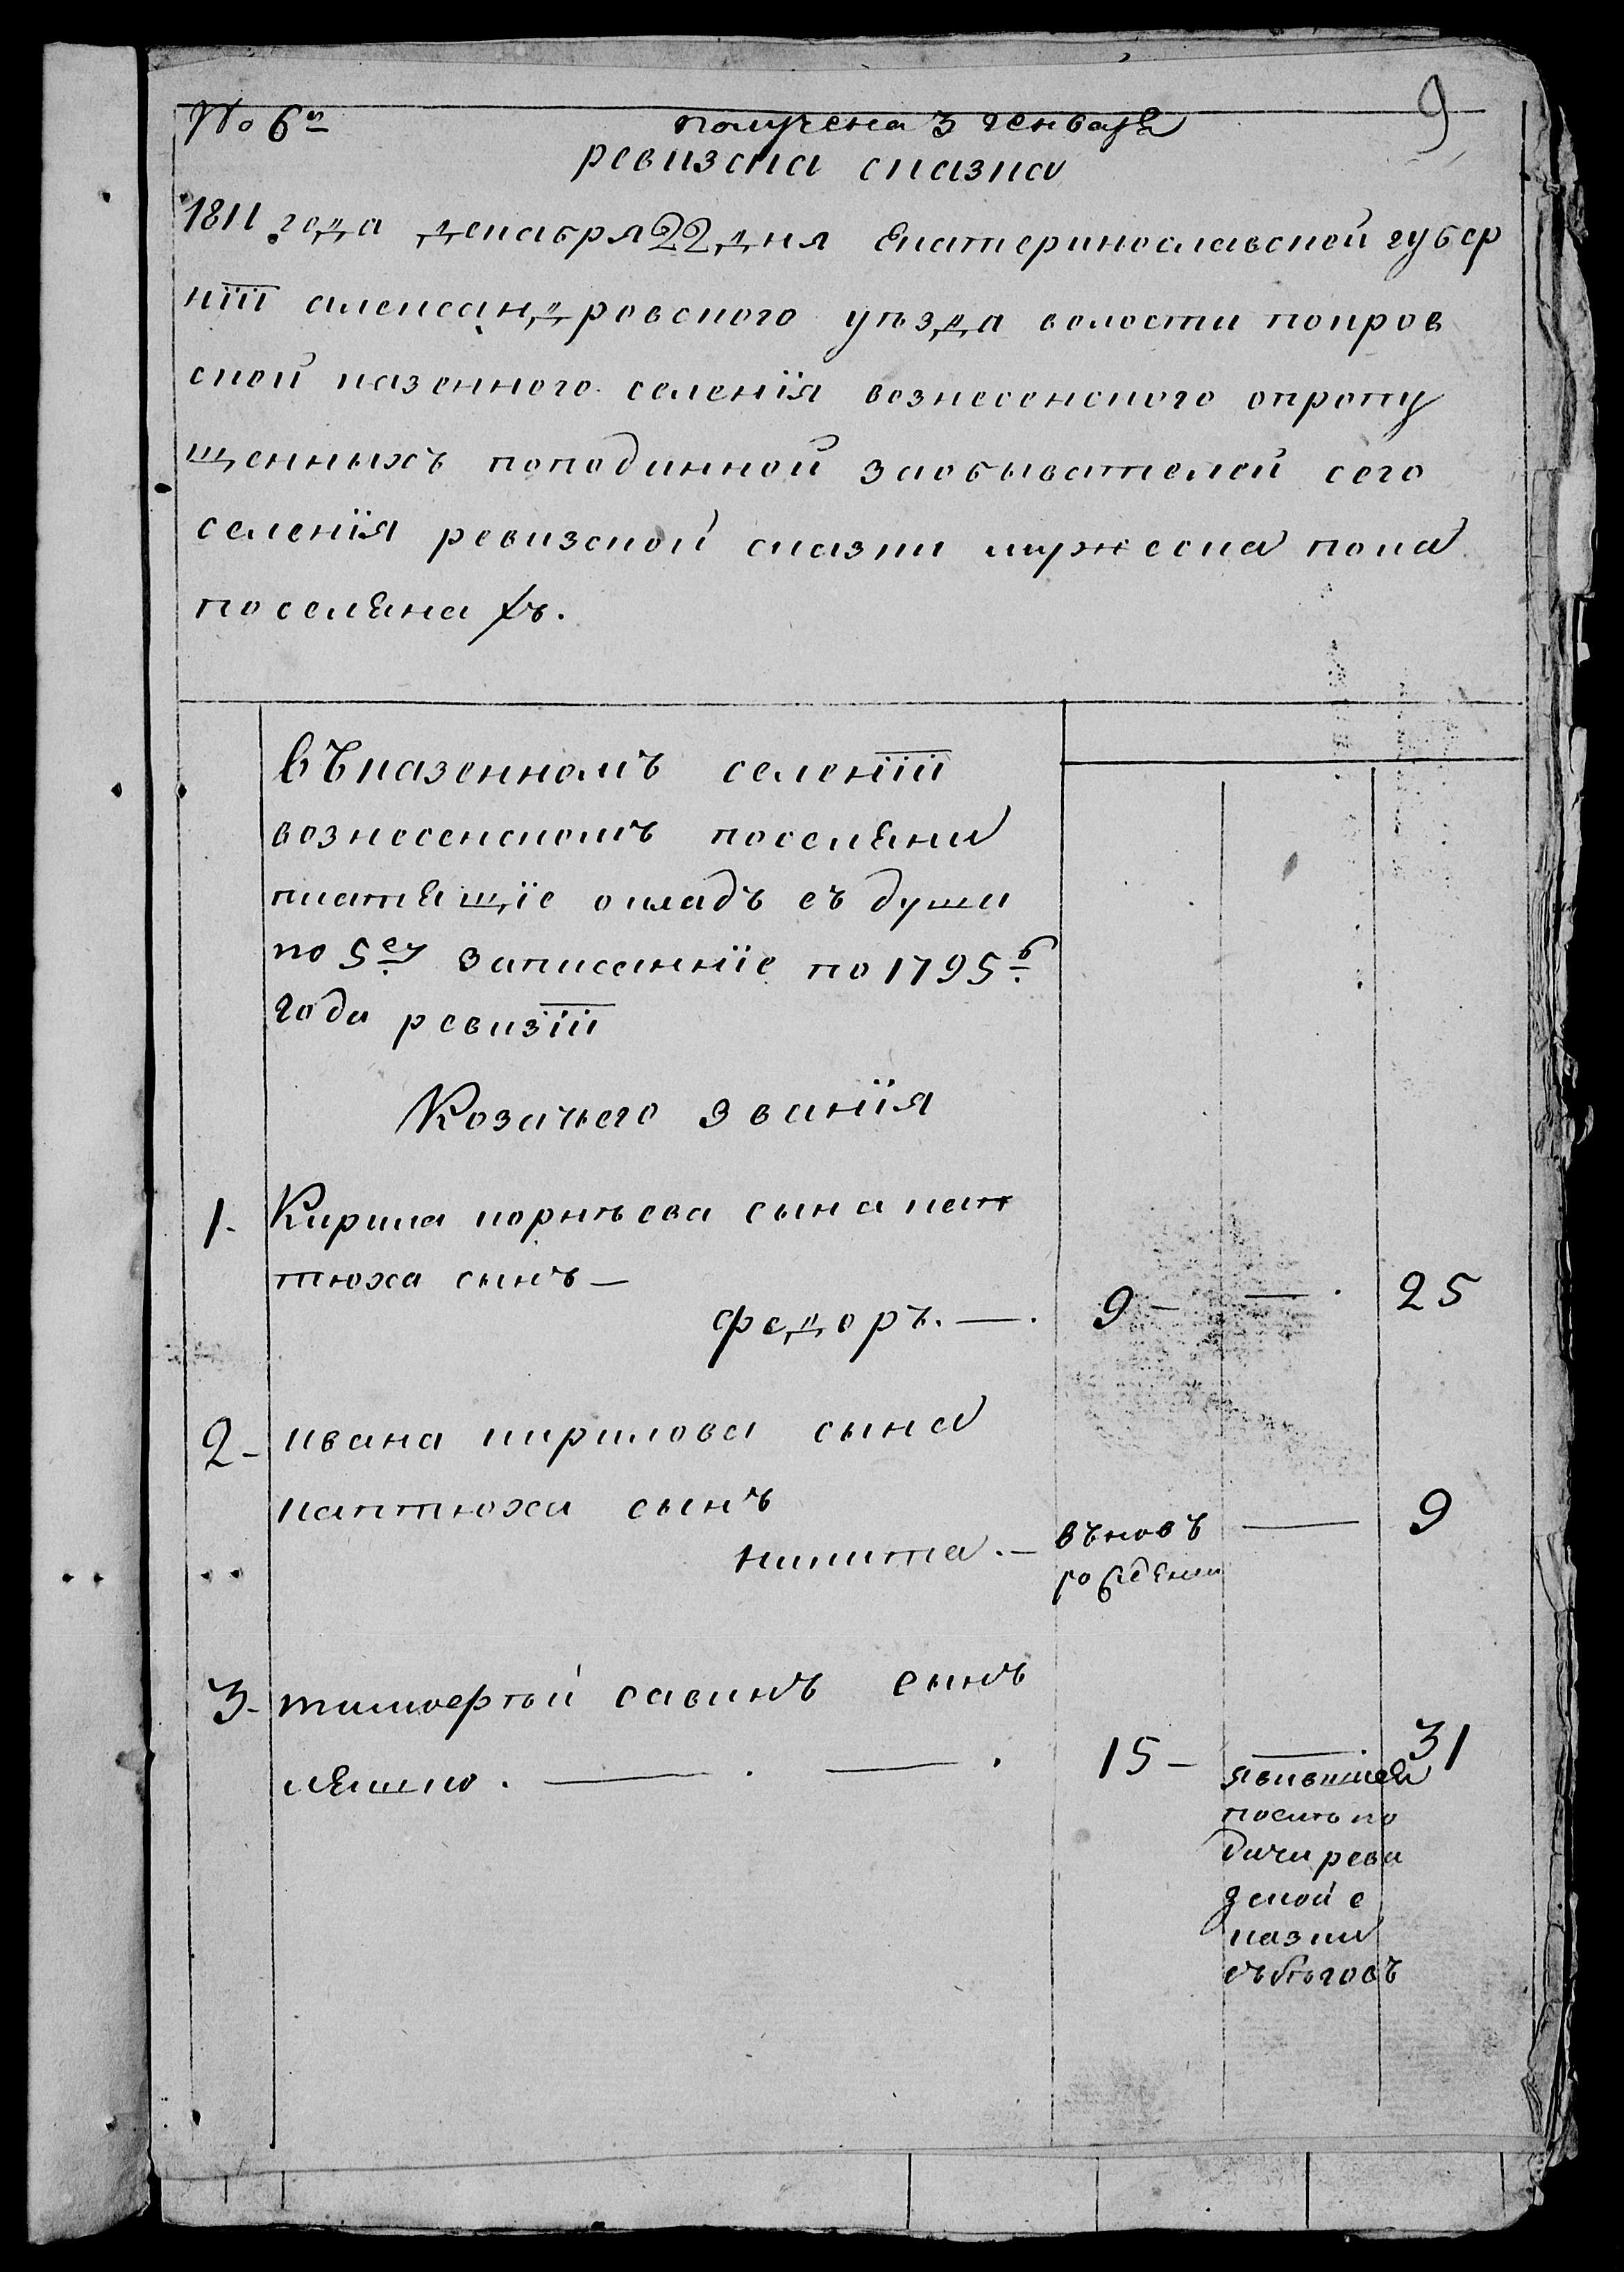 № 6й
получена 3 генваря
9
ревизска сказка
1811 года декабря 22 дня екатеринославской губер
нїи александровского уѣзда волости покров
ской казенного селенїя вознесенского опропу
щенныхъ поподинной заобывателей сего
селенїя ревизской сказки мужеска пола
поселянахъ.
въказенномъ селенїи
вознесенскомъ поселяни
платящїе окладъ съ души
по 5еу записаннїе по 1795б
года ревизїи
Козачего званїя
1. Кирила корнѣева сына кап
тюха сынъ —
федоръ. — 9 — — 25
2 - ивана кирилова сына
каптюха сынъ
никита. — въновь — 9
рожденни
3 - тимоергей савинъ сынъ
ляшко. — . — . 15 — — 31
явившей
посль по
дачи реви
зской с
казки
събѣговъ